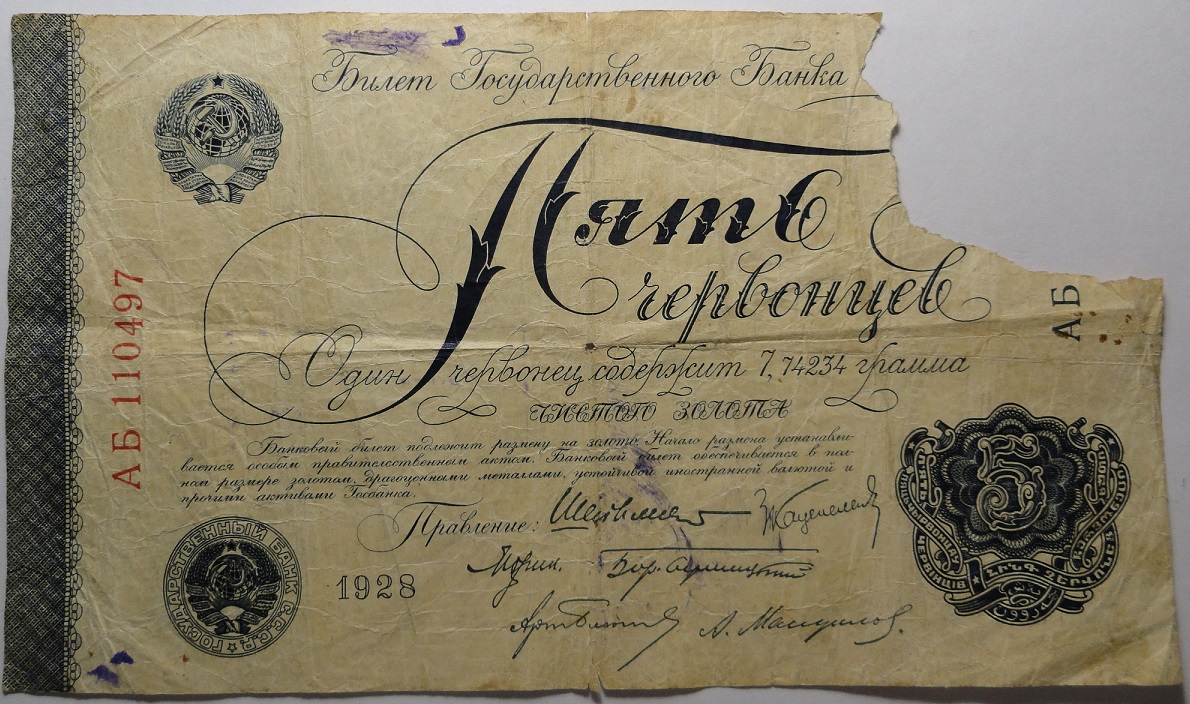 Билет Государственного Банка
Пять
червонцев
Один червонец содержит 7,74234 грамма
ЧИСТОГО ЗОЛОТА
Банковый билет подлежит размену на золото. Начало размена устанавли-
вается особым правительственным актом. Банковый билет обеспечивается в пол-
ном размере золотом, драгоценными металлами, устойчивой иностранной валютой и
прочими активами Госбанка.
Правление:
1928
АБ 110497
АБ
ГОСУДАРСТВЕННЫЙ БАНК С.С.С.Р.
5
ՀԻՆԳ ՉԵՐՎՈՆԵՑ